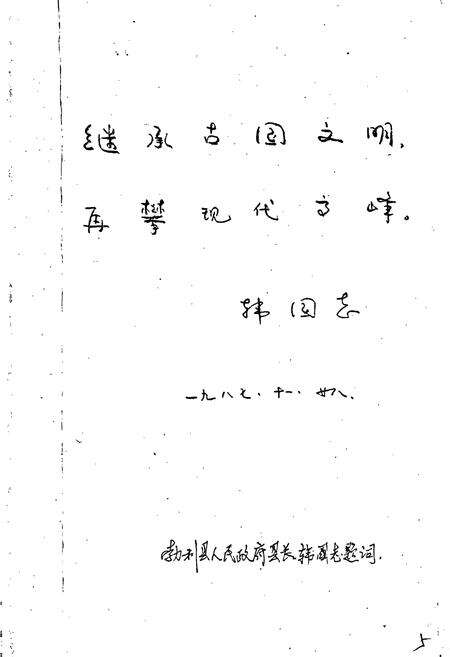 继承古国文明,
再攀现代高峰。
韩国志
一九八七.十一.廿八.
勃利县人民政府县长韩国志题词.
5